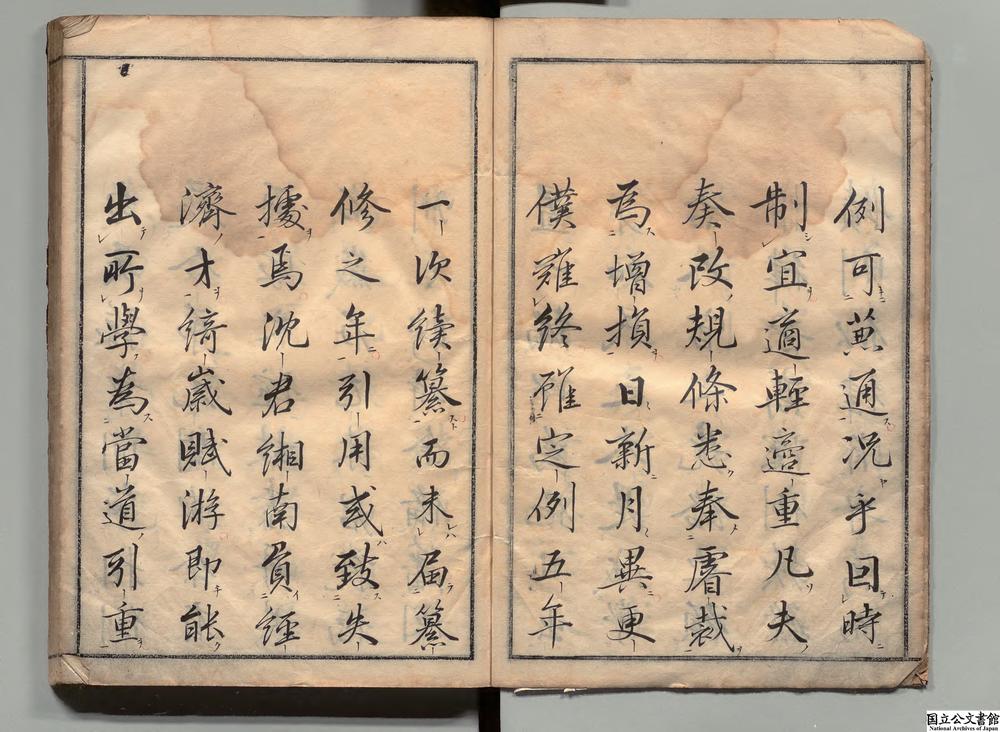 例可兼通況乎因時
制宜適輕適重凡夫
奏改規條悉奉睿裁
焉增損日新月異更
僕難終確定例五年
一次續纂而未屆纂
修之年引用或致失
據焉沈君緗南負經
濟才綺歲賦游即能
出所學為當道引重
国立公文書館
National Archives of Japan